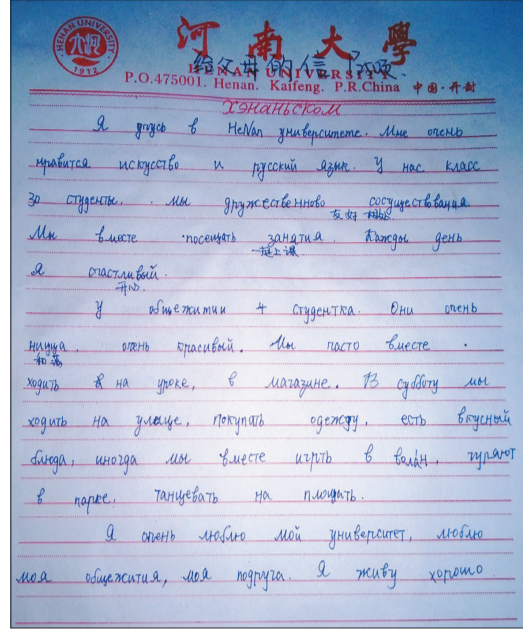 河南大學
HENAN UNIVERSITY
1912
给父母的信
HENAN UNIVERSITY
P.O.475001. Henan. Kaifeng. P.R.China 中国·开封
Хэнаньском
Я учусь в HeNan университете. Мне очень
нравится искусство и русский язык. У нас класс
30 студенты. Мы дружественново сосуществования
友好
Мы вместе посещать занатия. Каждый день
一起上课
Я счастливый.
开心
У общежитии 4 студентка. Они очень
очень красивый. Мы часто вместе.
和蔼
ходить на уроке, в магазине. В субботу мы
ходить на улаще, покупать одежду, есть вкусный
блюда, иногда мы вместе игрть в волан, гуляют
в парке, танцевать на плошать.
Я очень люблю мой университет, люблю
моя общежития, моя подруга. Я живу хорошо